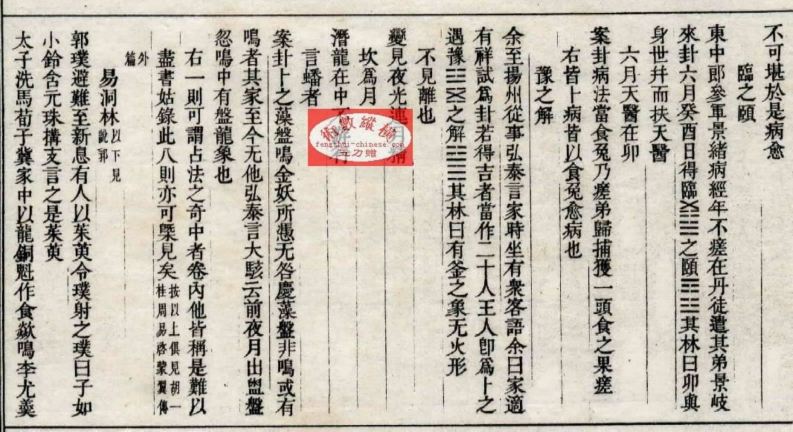 不可堪於是病愈
臨之頤
東中郎參軍景緒病經年不瘥在丹徒遣其弟景岐
來卦六月癸酉日得臨之頤其林曰卯與
身世幷而扶天醫
六月天醫在卯
案卦病法當食兔乃瘥弟歸捕獲一頭食之果瘥
右皆卜病皆以食兔愈病也
豫之解
余至揚州從事弘泰言家時坐有衆客語余曰家適
有祥試爲卦若得吉者當作二十人主人卽爲卜之
遇豫之解其林曰有釜之象无火形
不見離也
變見夜光連月精
坎爲月
潛龍在中不
言蟠者
案卦卜之藻盤鳴金妖所憑无咎慶藻盤非鳴或有
鳴者其家至今无他弘泰言大駭云前夜月出盥盤
忽鳴中有盤龍象也
右一則可謂占法之奇中者卷內他皆稱是難以
盡書姑錄此八則亦可槩見矣 按以上俱見胡一桂周易啓蒙翼傳
外篇
易洞林 以下見說郛
郭璞避難至新息有人以茱萸令璞射之璞曰子如
小鈴含元珠搆支言之是茱萸
太子洗馬荀子驥家中以龍銅魁作食歘鳴李尤羹
術數縱橫
fengshui-chinese.com
勿贈